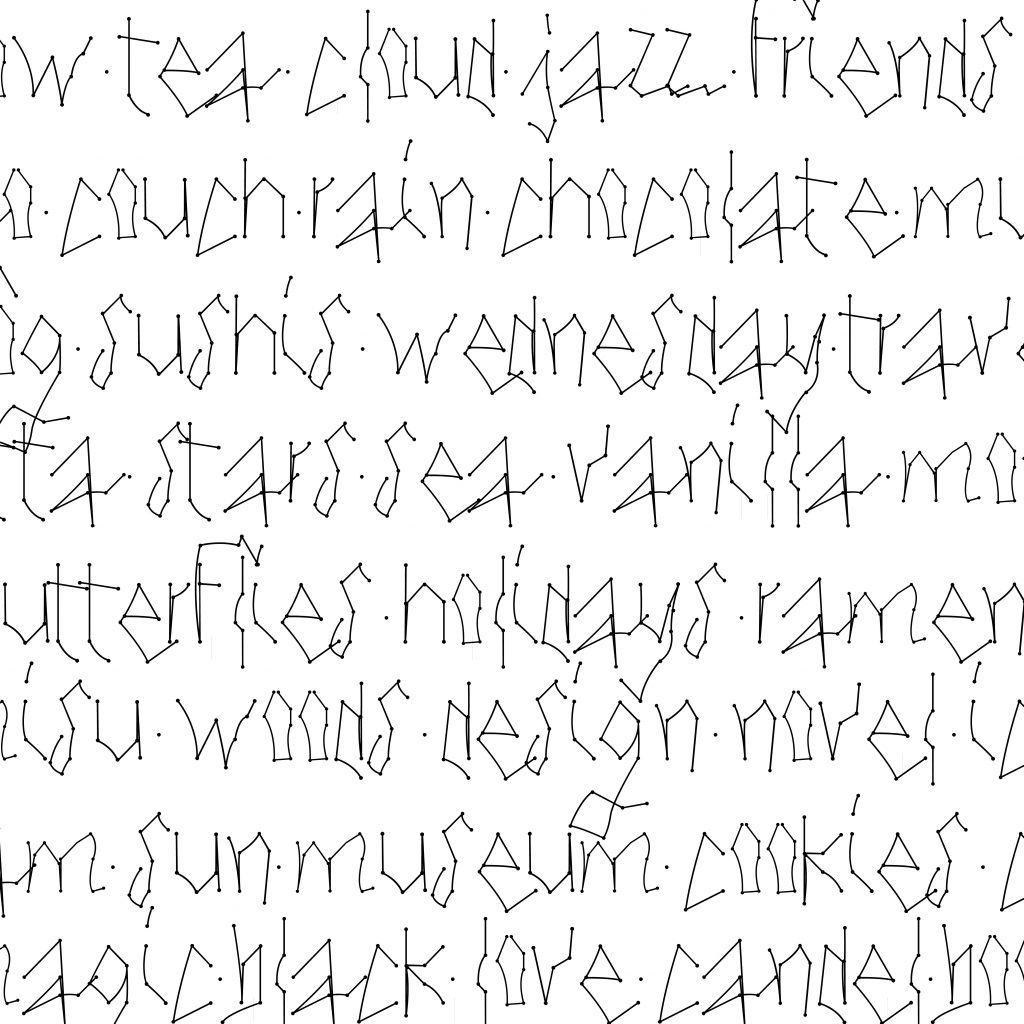 ow · tea · cloud · jazz · friends
o · couch · rain · chocolate · mu
go · sushis · wednesday · trav
ta · stars · sea · vanilla · mo
utterflies · holidays · ramen
isu · woods · design · novel · ic
m · sun · museum · cookies · c
agic · black · love · candle · bo